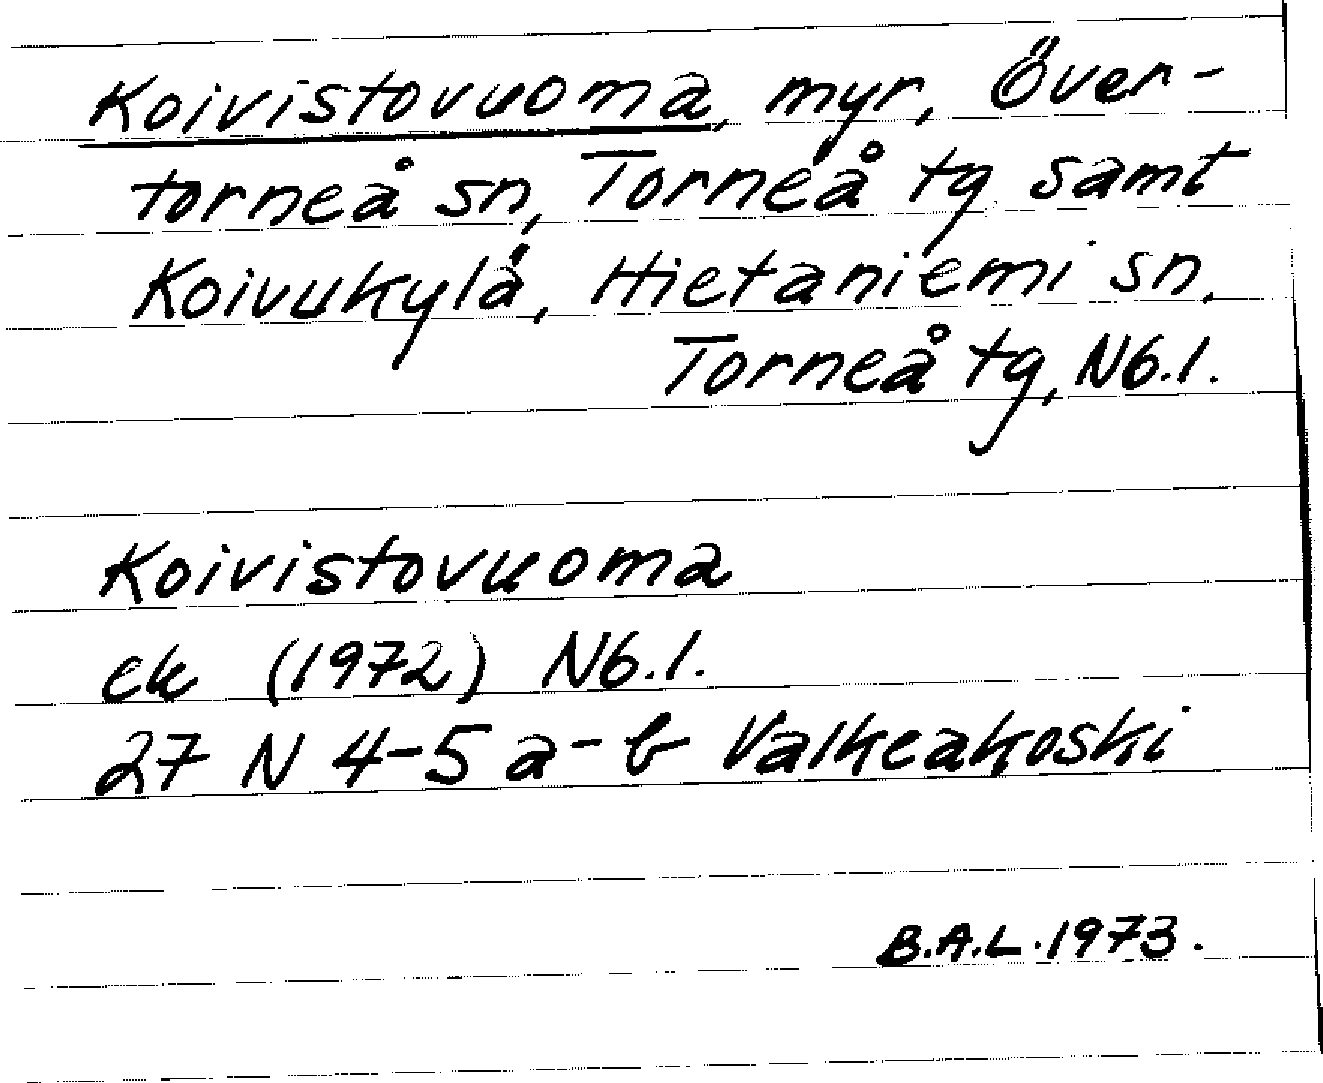 Koivistovuoma, myr, Över-
torneå sn, Torneå tg samt
Koivukylä, Hietaniemi sn,
Torneå tg, N6.1.
Koivistovuoma
ek (1972) N6.1.
27 N 4-5 a-b Valkeakoski
B.A.L. 1973.